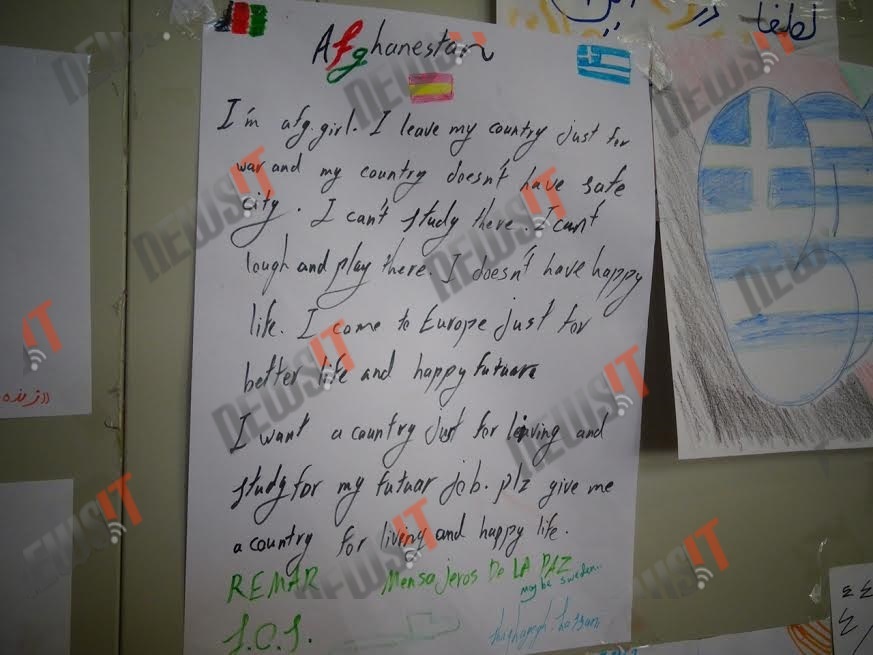 Afghanestan
I'm afg.girl. I leave my country just for
war and my country doesn't have safe
city. I can't study there. I can't
lough and play there. I doesn't have happy
life. I come to Europe just for
better life and happy futuare
I want a country just for leiving and
study for my futuar job. plz give me
a country for living and happy life.
REMAR Mensajeros De LA PAZ
may be sweden...
S.O.S.
لطفا
NEWSIT
NEWSIT
NEWSIT
NEWSIT
NEWSIT
NEWSIT
NEWSIT
NEWSIT
NEWSIT
NEWSIT